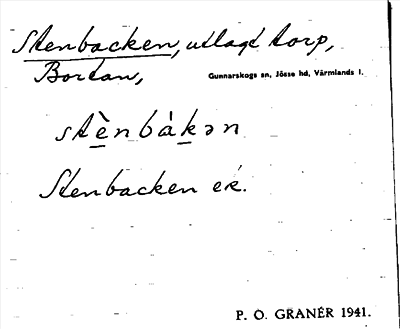 Stenbacken, utlagt torp,
Bortan, Gunnarskogs sn, Jösse hd, Värmlands l.
stènbàkən
Stenbacken ek.
P. O. GRANÉR 1941.